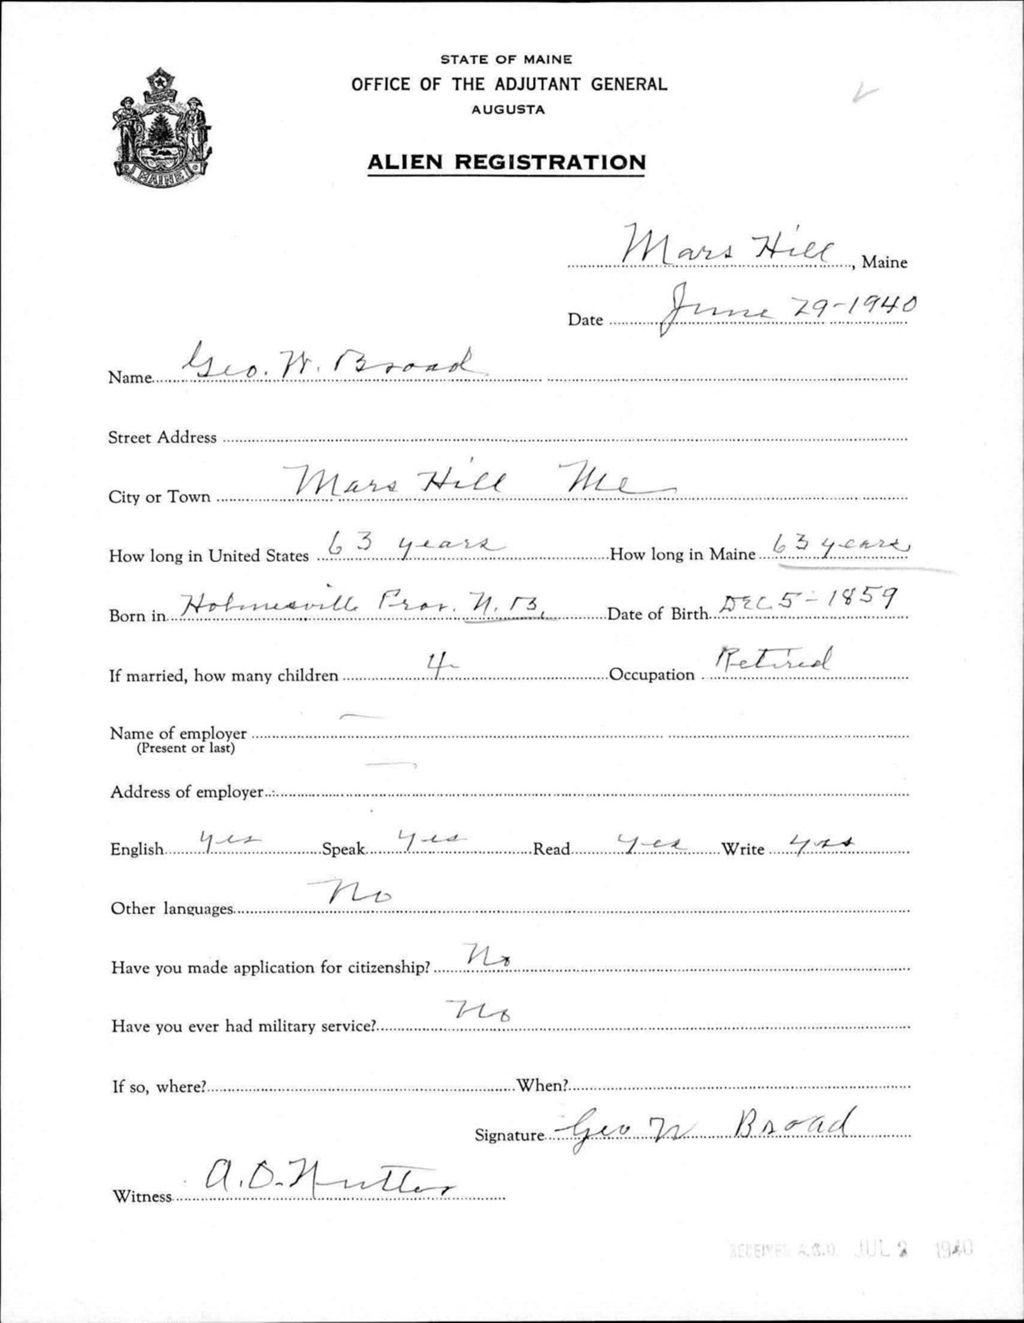 STATE OF MAINE
OFFICE OF THE ADJUTANT GENERAL
AUGUSTA
ALIEN REGISTRATION
MAINE
Mars Hill, Maine
Date June 29-1940
Name Geo. W. Broad
Street Address
City or Town Mars Hill Me
How long in United States 63 years How long in Maine 63 years
Born in Holmesville Prov. N.B, Date of Birth DEC 5 - 1859
If married, how many children 4 Occupation Retired
Name of employer
(Present or last)
Address of employer
English yes Speak yes Read yes Write yes
Other languages No
Have you made application for citizenship? No
Have you ever had military service? No
If so, where? When?
Signature Geo W Broad
Witness A.D. Nutter
RECEIVED A.G.O. JUL 2 1940